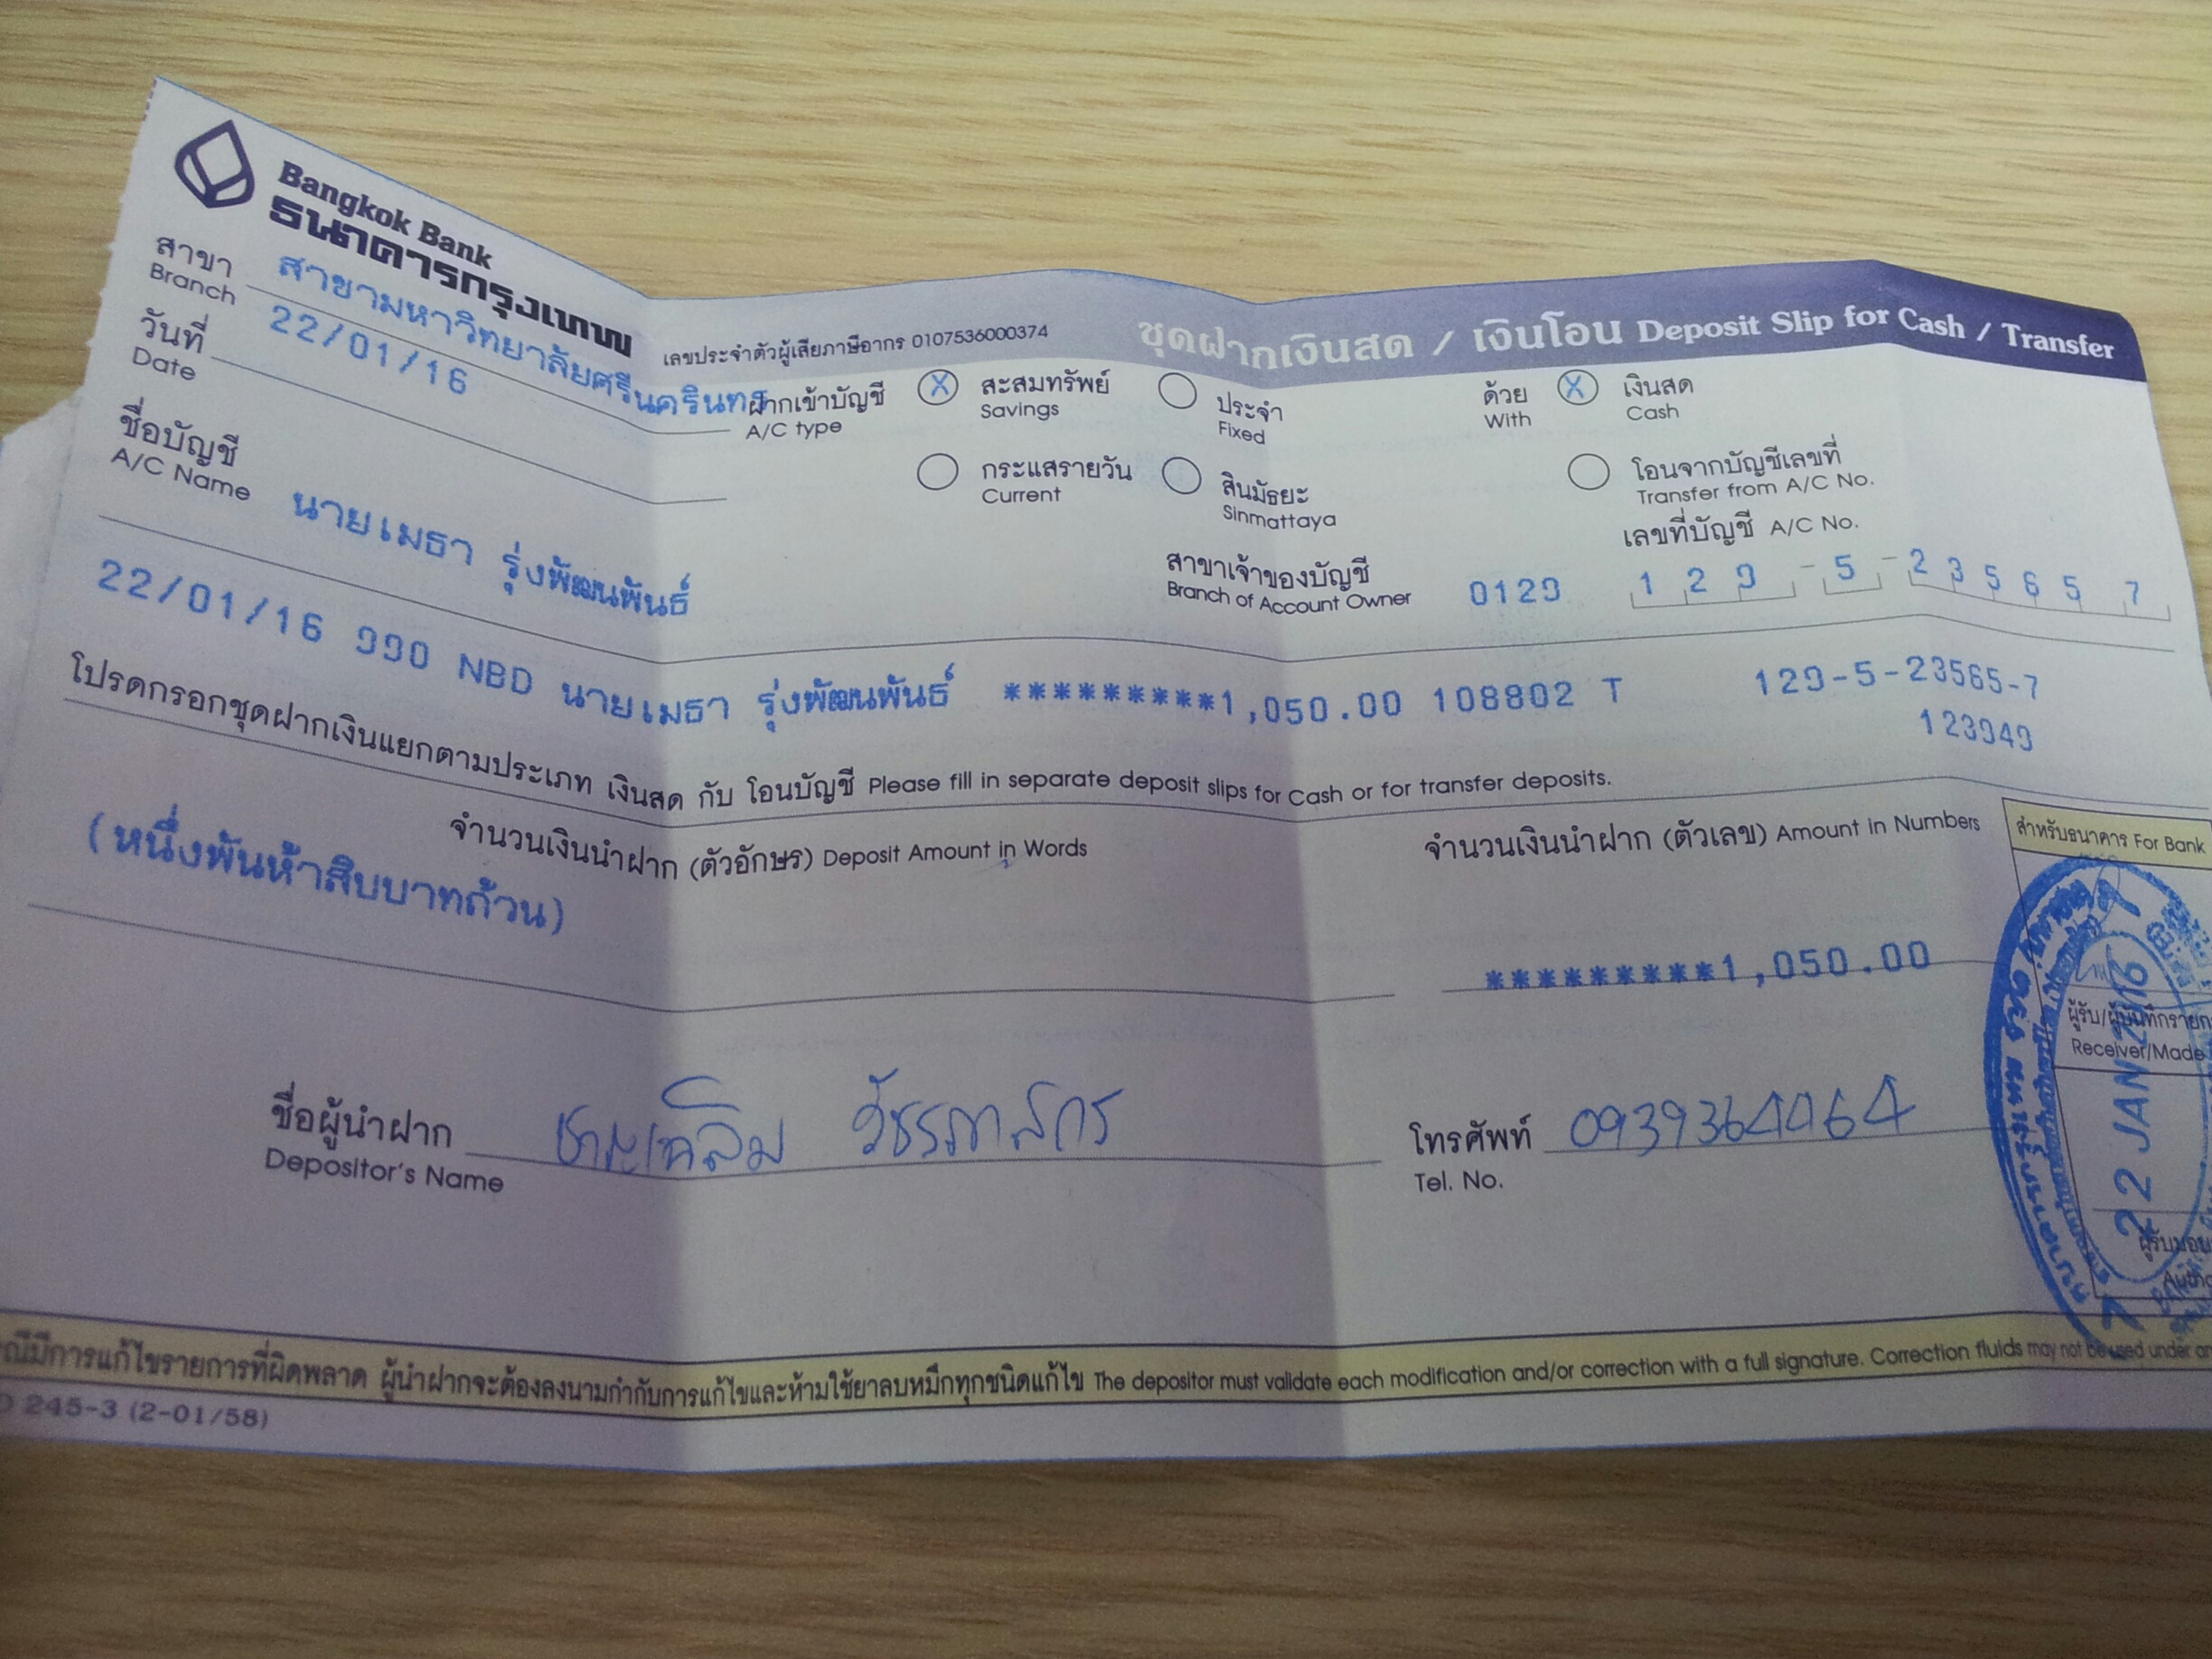 Bangkok Bank
ธนาคารกรุงเทพ
สาขา สาขามหาวิทยาลัยศรีนครินทร
Branch
วันที่ 22/01/16
Date
เลขประจำตัวผู้เสียภาษีอากร 0107536000374
ชุดฝากเงินสด / เงินโอน Deposit Slip for Cash / Transfer
ฝากเข้าบัญชี X สะสมทรัพย์ ประจำ ด้วย X เงินสด
A/C type Savings Fixed With Cash
กระแสรายวัน สินมัธยะ โอนจากบัญชีเลขที่
Current Sinmattaya Transfer from A/C No.
ชื่อบัญชี นายเมธา รุ่งพัฒนพันธ์
A/C Name
สาขาเจ้าของบัญชี เลขที่บัญชี A/C No.
Branch of Account Owner 0129 129-5-23565 7
22/01/16 990 NBD นายเมธา รุ่งพัฒนพันธ์ *********1,050.00 108802 T 129-5-23565-7
123949
โปรดกรอกชุดฝากเงินแยกตามประเภท เงินสด กับ โอนบัญชี Please fill in separate deposit slips for Cash or for transfer deposits.
จำนวนเงินนำฝาก (ตัวอักษร) Deposit Amount in Words จำนวนเงินนำฝาก (ตัวเลข) Amount in Numbers สำหรับธนาคาร For Bank
(หนึ่งพันห้าสิบบาทถ้วน) *********1,050.00
ผู้รับ/ผู้บันทึกรายก
Receiver/Made
22 JAN 2016
ชื่อผู้นำฝาก วัชรภาสกร โทรศัพท์ 0939364464
Depositor's Name Tel. No.
ผู้รับมอบ
Autho
ณีมีการแก้ไขรายการที่ผิดพลาด ผู้นำฝากจะต้องลงนามกำกับการแก้ไขและห้ามใช้ยาลบหมึกทุกชนิดแก้ไข The depositor must validate each modification and/or correction with a full signature. Correction fluids may not be used under an
245-3 (2-01/58)